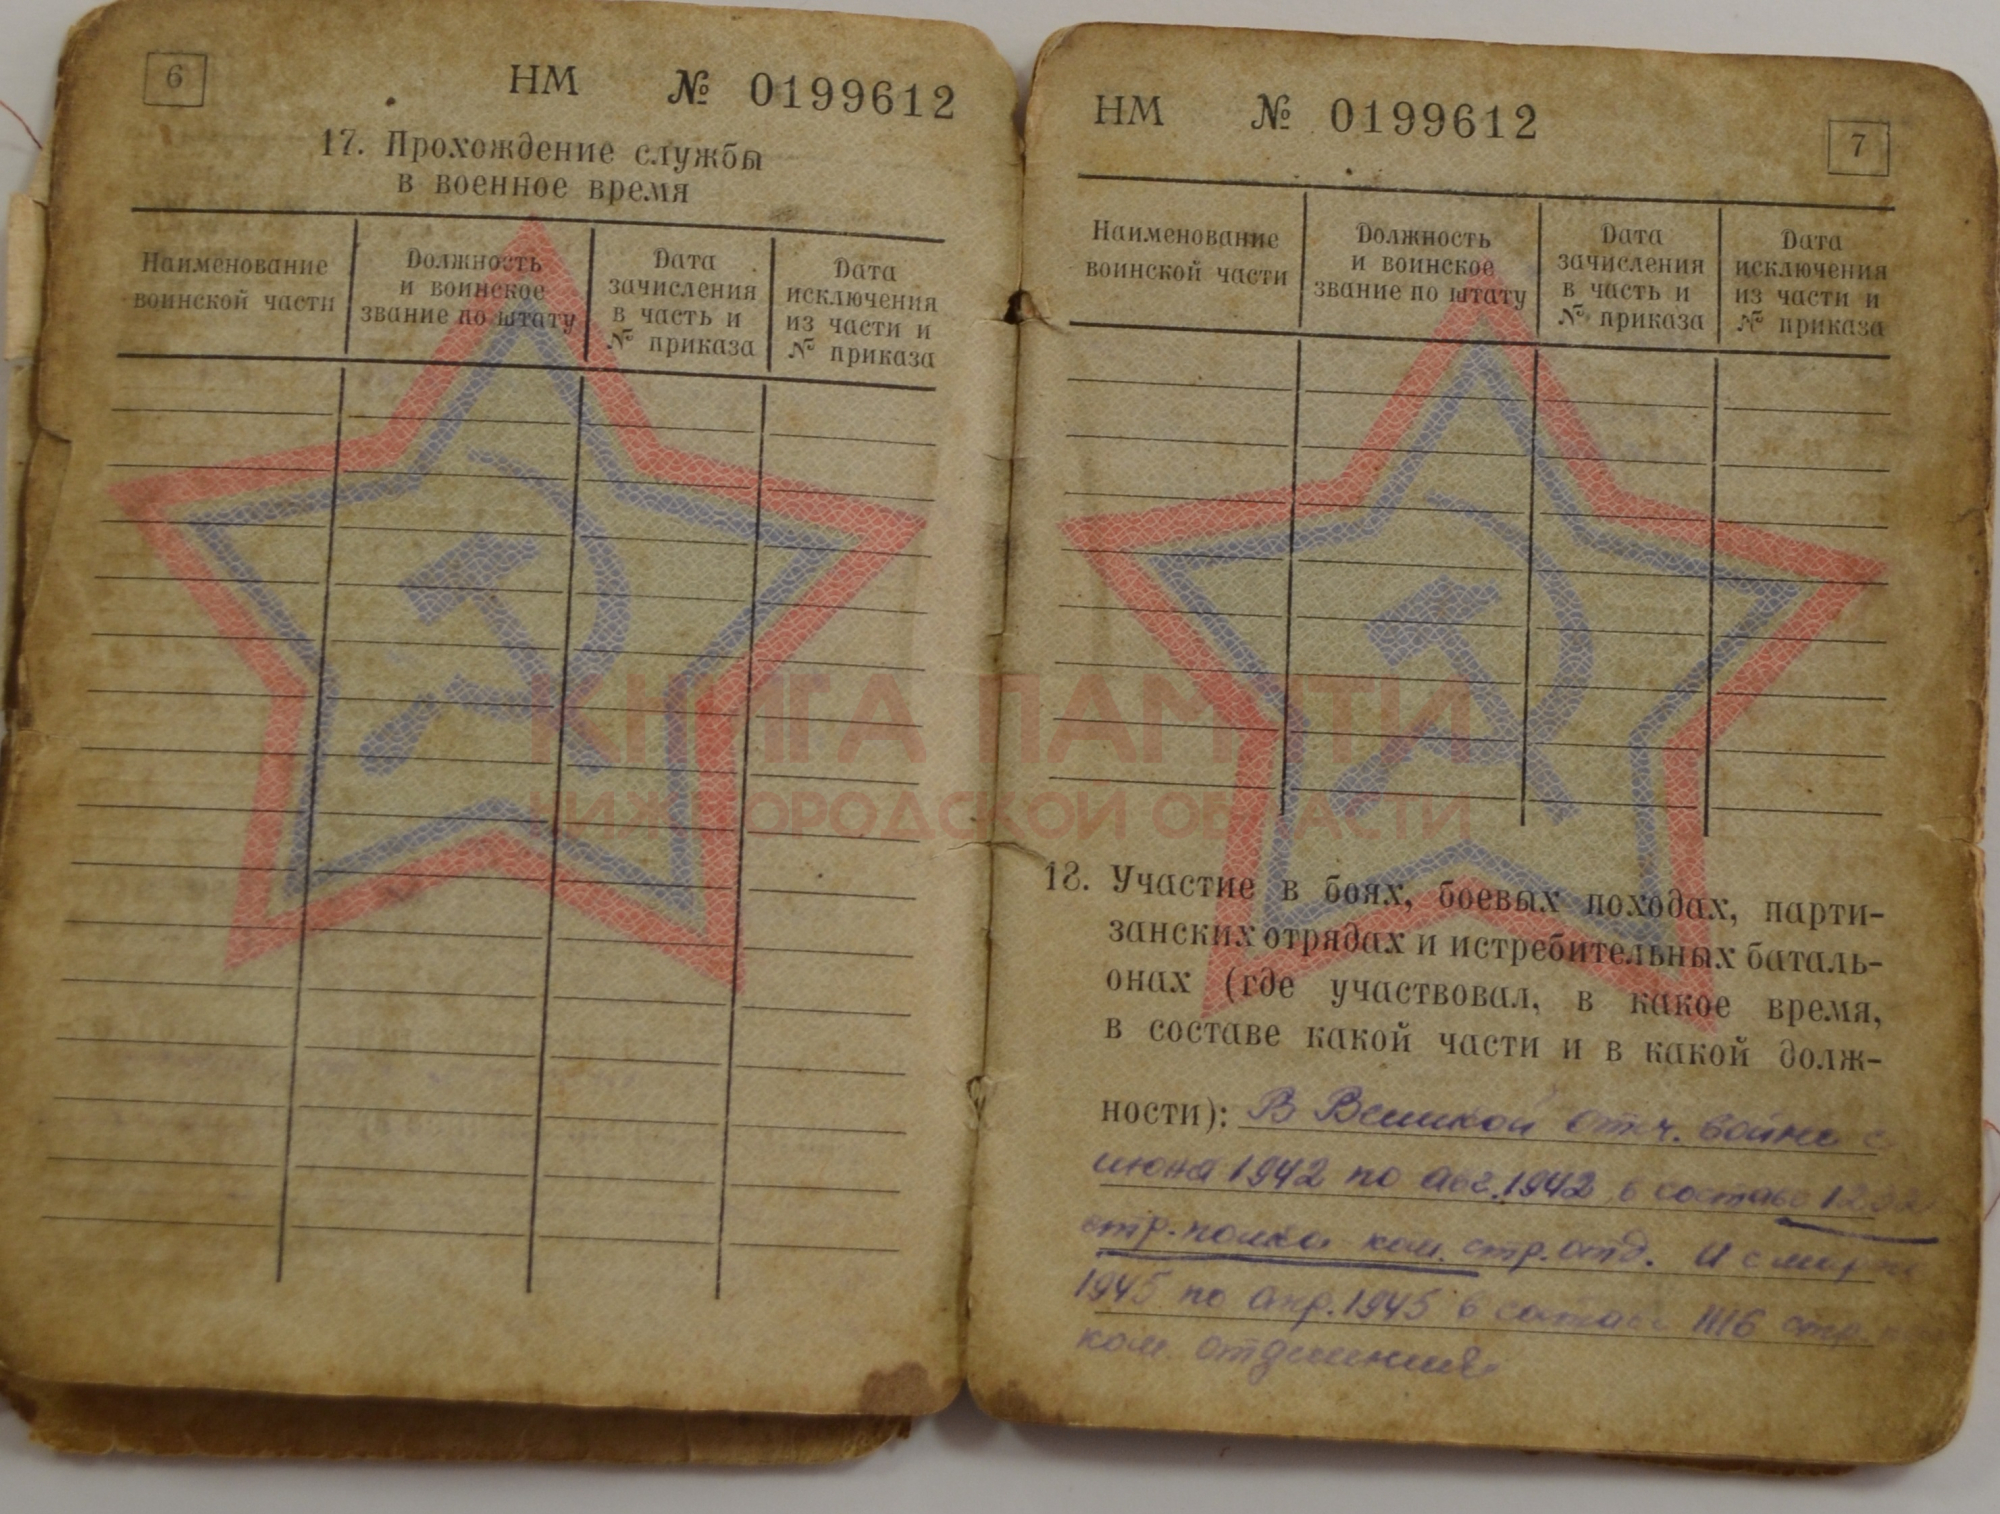 6
НМ № 0199612
17. Прохождение службы
в военное время
Наименование
воинской части
Должность
и воинское
звание по штату
Дата
зачисления
в часть и
№ приказа
Дата
исключения
из части и
№ приказа
НМ № 0199612
7
Наименование
воинской части
Должность
и воинское
звание по штату
Дата
зачисления
в часть и
№ приказа
Дата
исключения
из части и
№ приказа
КНИГА ПАМЯТИ
НИЖЕГОРОДСКОЙ ОБЛАСТИ
18. Участие в боях, боевых походах, парти-
занских отрядах и истребительных баталь-
онах (где участвовал, в какое время,
в составе какой части и в какой долж-
ности): В Великой отеч. войне с
июня 1942 по авг. 1942 в составе
стр. полка ком. стр. отд. И с марта
1945 по апр. 1945 в составе 1116 стр.
ком отделения